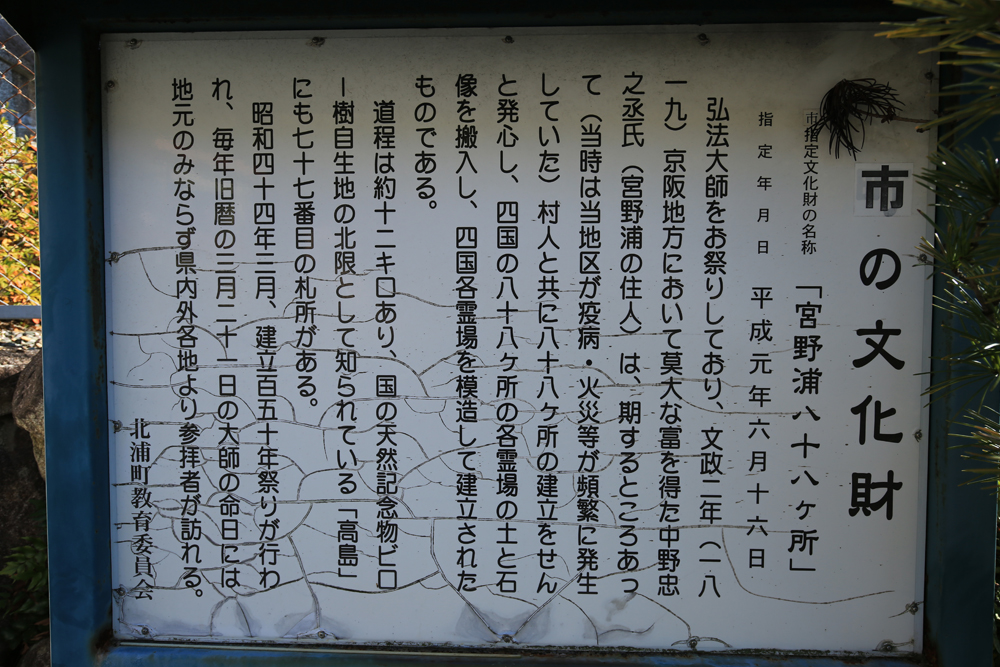 市の文化財
市指定文化財の名称 「宮野浦八十八ヶ所」
指定年月日 平成元年六月十六日
弘法大師をお祭りしており、文政二年（一八
一九）京阪地方において莫大な富を得た中野忠
之丞氏（宮野浦の住人）は、期するところあっ
て（当時は当地区が疫病・火災等が頻繁に発生
していた）村人と共に八十八ヶ所の建立をせん
と発心し、四国の八十八ヶ所の各霊場の土と石
像を搬入し、四国各霊場を模造して建立された
ものである。
道程は約十二キロあり、国の天然記念物ビロ
ー樹自生地の北限として知られている「高島」
にも七十七番目の札所がある。
昭和四十四年二月、建立百五十年祭りが行わ
れ、毎年旧暦の二月二十一日の大師の命日には
地元のみならず県内外各地より参拝者が訪れる。
北浦町教育委員会